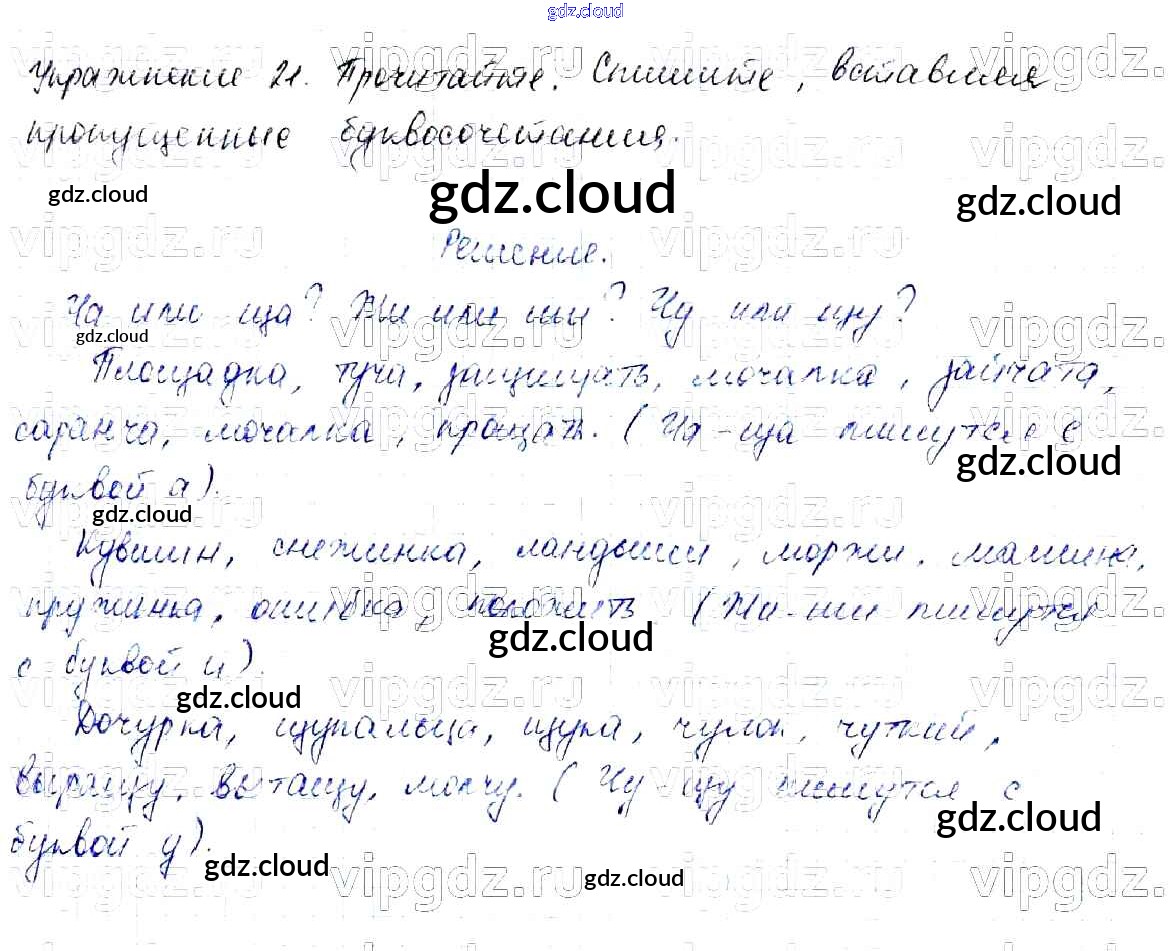 gdz.cloud
Упражнение 21. Прочитайте. Спишите, вставляя
пропущенные буквосочетания.
gdz.cloud gdz.cloud gdz.cloud
Решение.
Ча или ща? Жи или ши? Чу или щу?
gdz.cloud
Площадка, туча, защищать, мочалка, зайчата,
саранча, мочалка, прощать. (Ча-ща пишутся с
gdz.cloud
буквой а).
gdz.cloud
Кувшин, снежинка, ландыши, моржи, машина,
пружинка, ошибка, положить (Жи-ши пишутся
gdz.cloud
с буквой и).
gdz.cloud
Дочурка, щупальца, щука, чулок, чуткий,
выращу, вытащу, молчу. (Чу-щу пишутся с
gdz.cloud
буквой у).
gdz.cloud gdz.cloud
vipgdz.ru